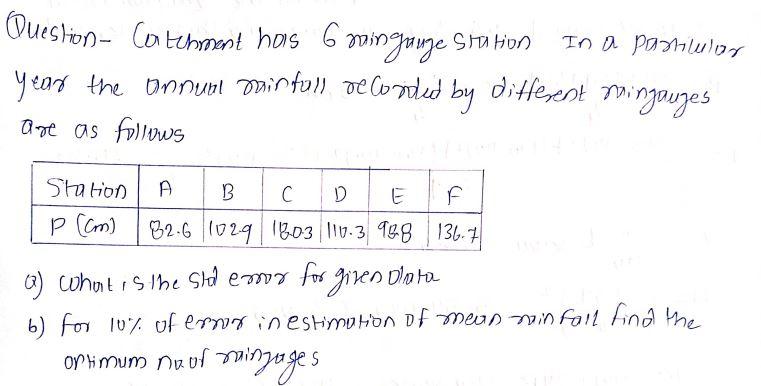 Question- Catchment has 6 raingauge Station In a particular
year the annual rainfall recorded by different raingauges
are as follows
Station A B C D E F
P (Cm) 82.6 102.9 180.3 110.3 98.8 136.7
a) what is the Std error for given Data
b) for 10% of error in estimation of mean rainfall find the
optimum no of raingages